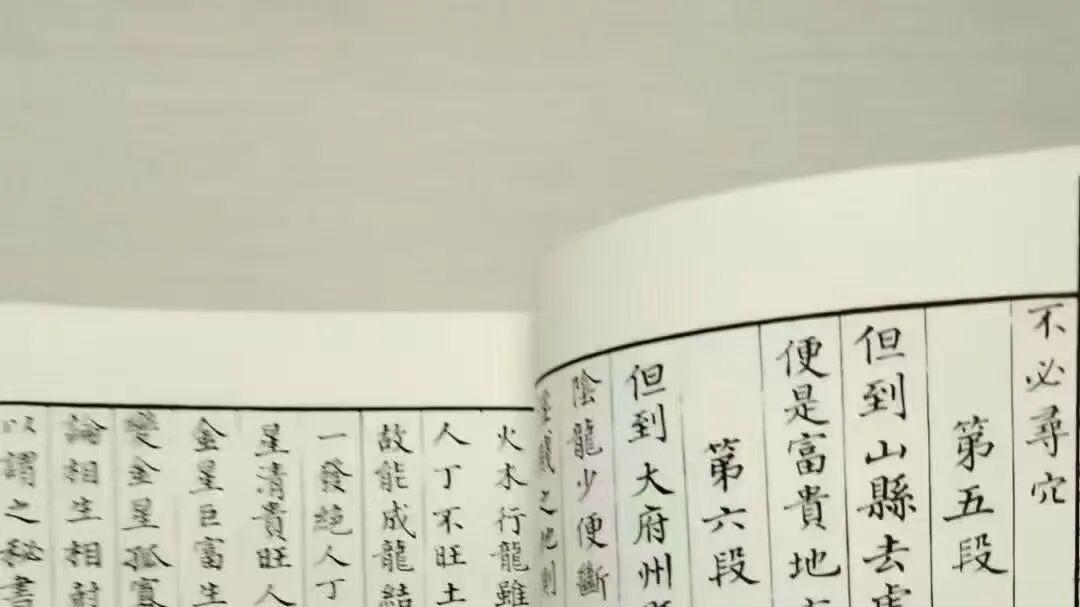 不必尋穴
第五段
但到山縣去
便是富貴地
第六段
但到大府州
陰龍少便斷
之地則
火木行龍雖
人丁不旺土
故能成龍結
一發絕人丁
星清貴旺人
金星巨富生
變金星孤寡
論相生相
以謂之秘書